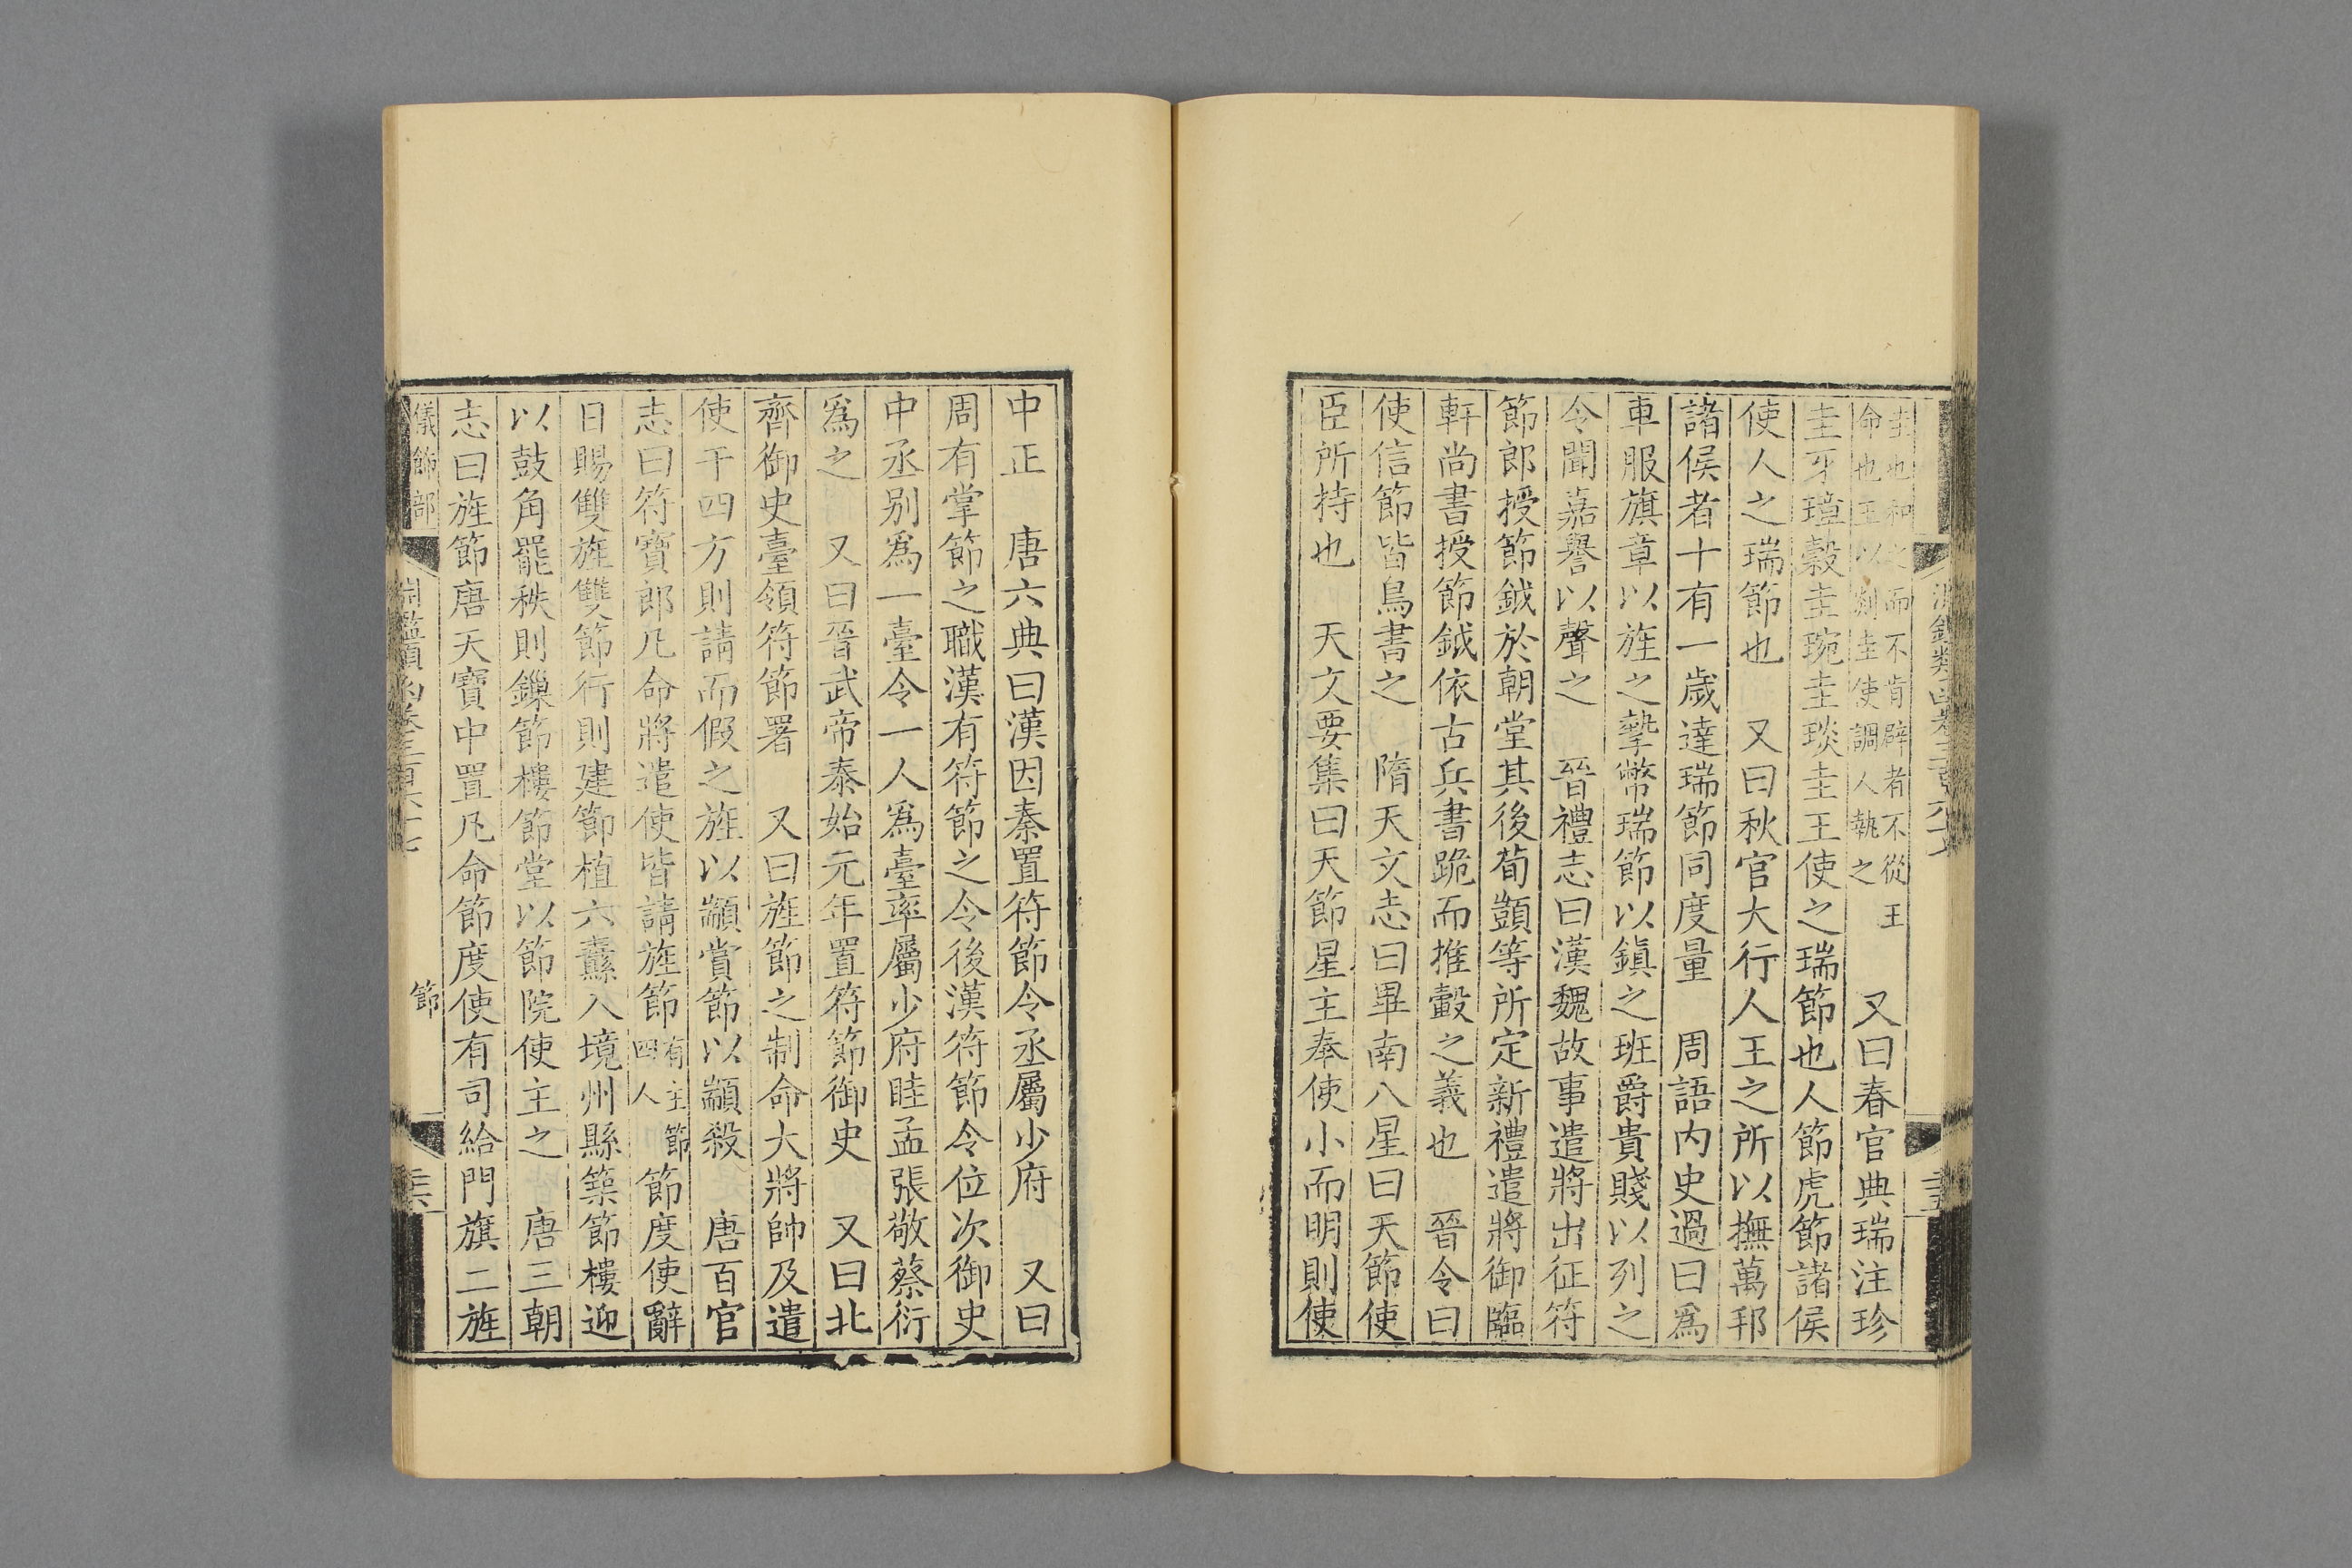 圭也和之而不肯辟者不從王
命也王以剡圭使調人執之
又曰春官典瑞注珍
圭牙璋穀圭琬圭琰圭王使之瑞節也人節虎節諸侯
使人之瑞節也 又曰秋官大行人王之所以撫萬邦
諸侯者十有一歲達瑞節同度量 周語内史過曰爲
車服旗章以旌之摯幣瑞節以鎮之班爵貴賤以列之
令聞嘉譽以聲之 晉禮志曰漢魏故事遣將出征符
節郎授節鉞於朝堂其後荀顗等所定新禮遣將御臨
軒尚書授節鉞依古兵書跪而推轂之義也 晉令曰
使信節皆鳥書之 隋天文志曰畢南八星曰天節使
臣所持也 天文要集曰天節星主奉使小而明則使
中正 唐六典曰漢因秦置符節令丞屬少府 又曰
周有掌節之職漢有符節之令後漢符節令位次御史
中丞别爲一臺令一人爲臺率屬少府眭孟張敞蔡衍
爲之 又曰晉武帝泰始元年置符節御史 又曰北
齊御史臺領符節署 又曰旌節之制命大將帥及遣
使干四方則請而假之旌以顓賞節以顓殺 唐百官
志曰符寶郎凡命將遣使皆請旌節有主節四人節度使辭
日賜雙旌雙節行則建節植六纛入境州縣築節樓迎
以鼓角罷秩則鏁節樓節堂以節院使主之 唐三朝
志曰旌節唐天寶中置凡命節度使有司給門旗二旌
儀飾部 淵鑑類函卷三百六十七 節